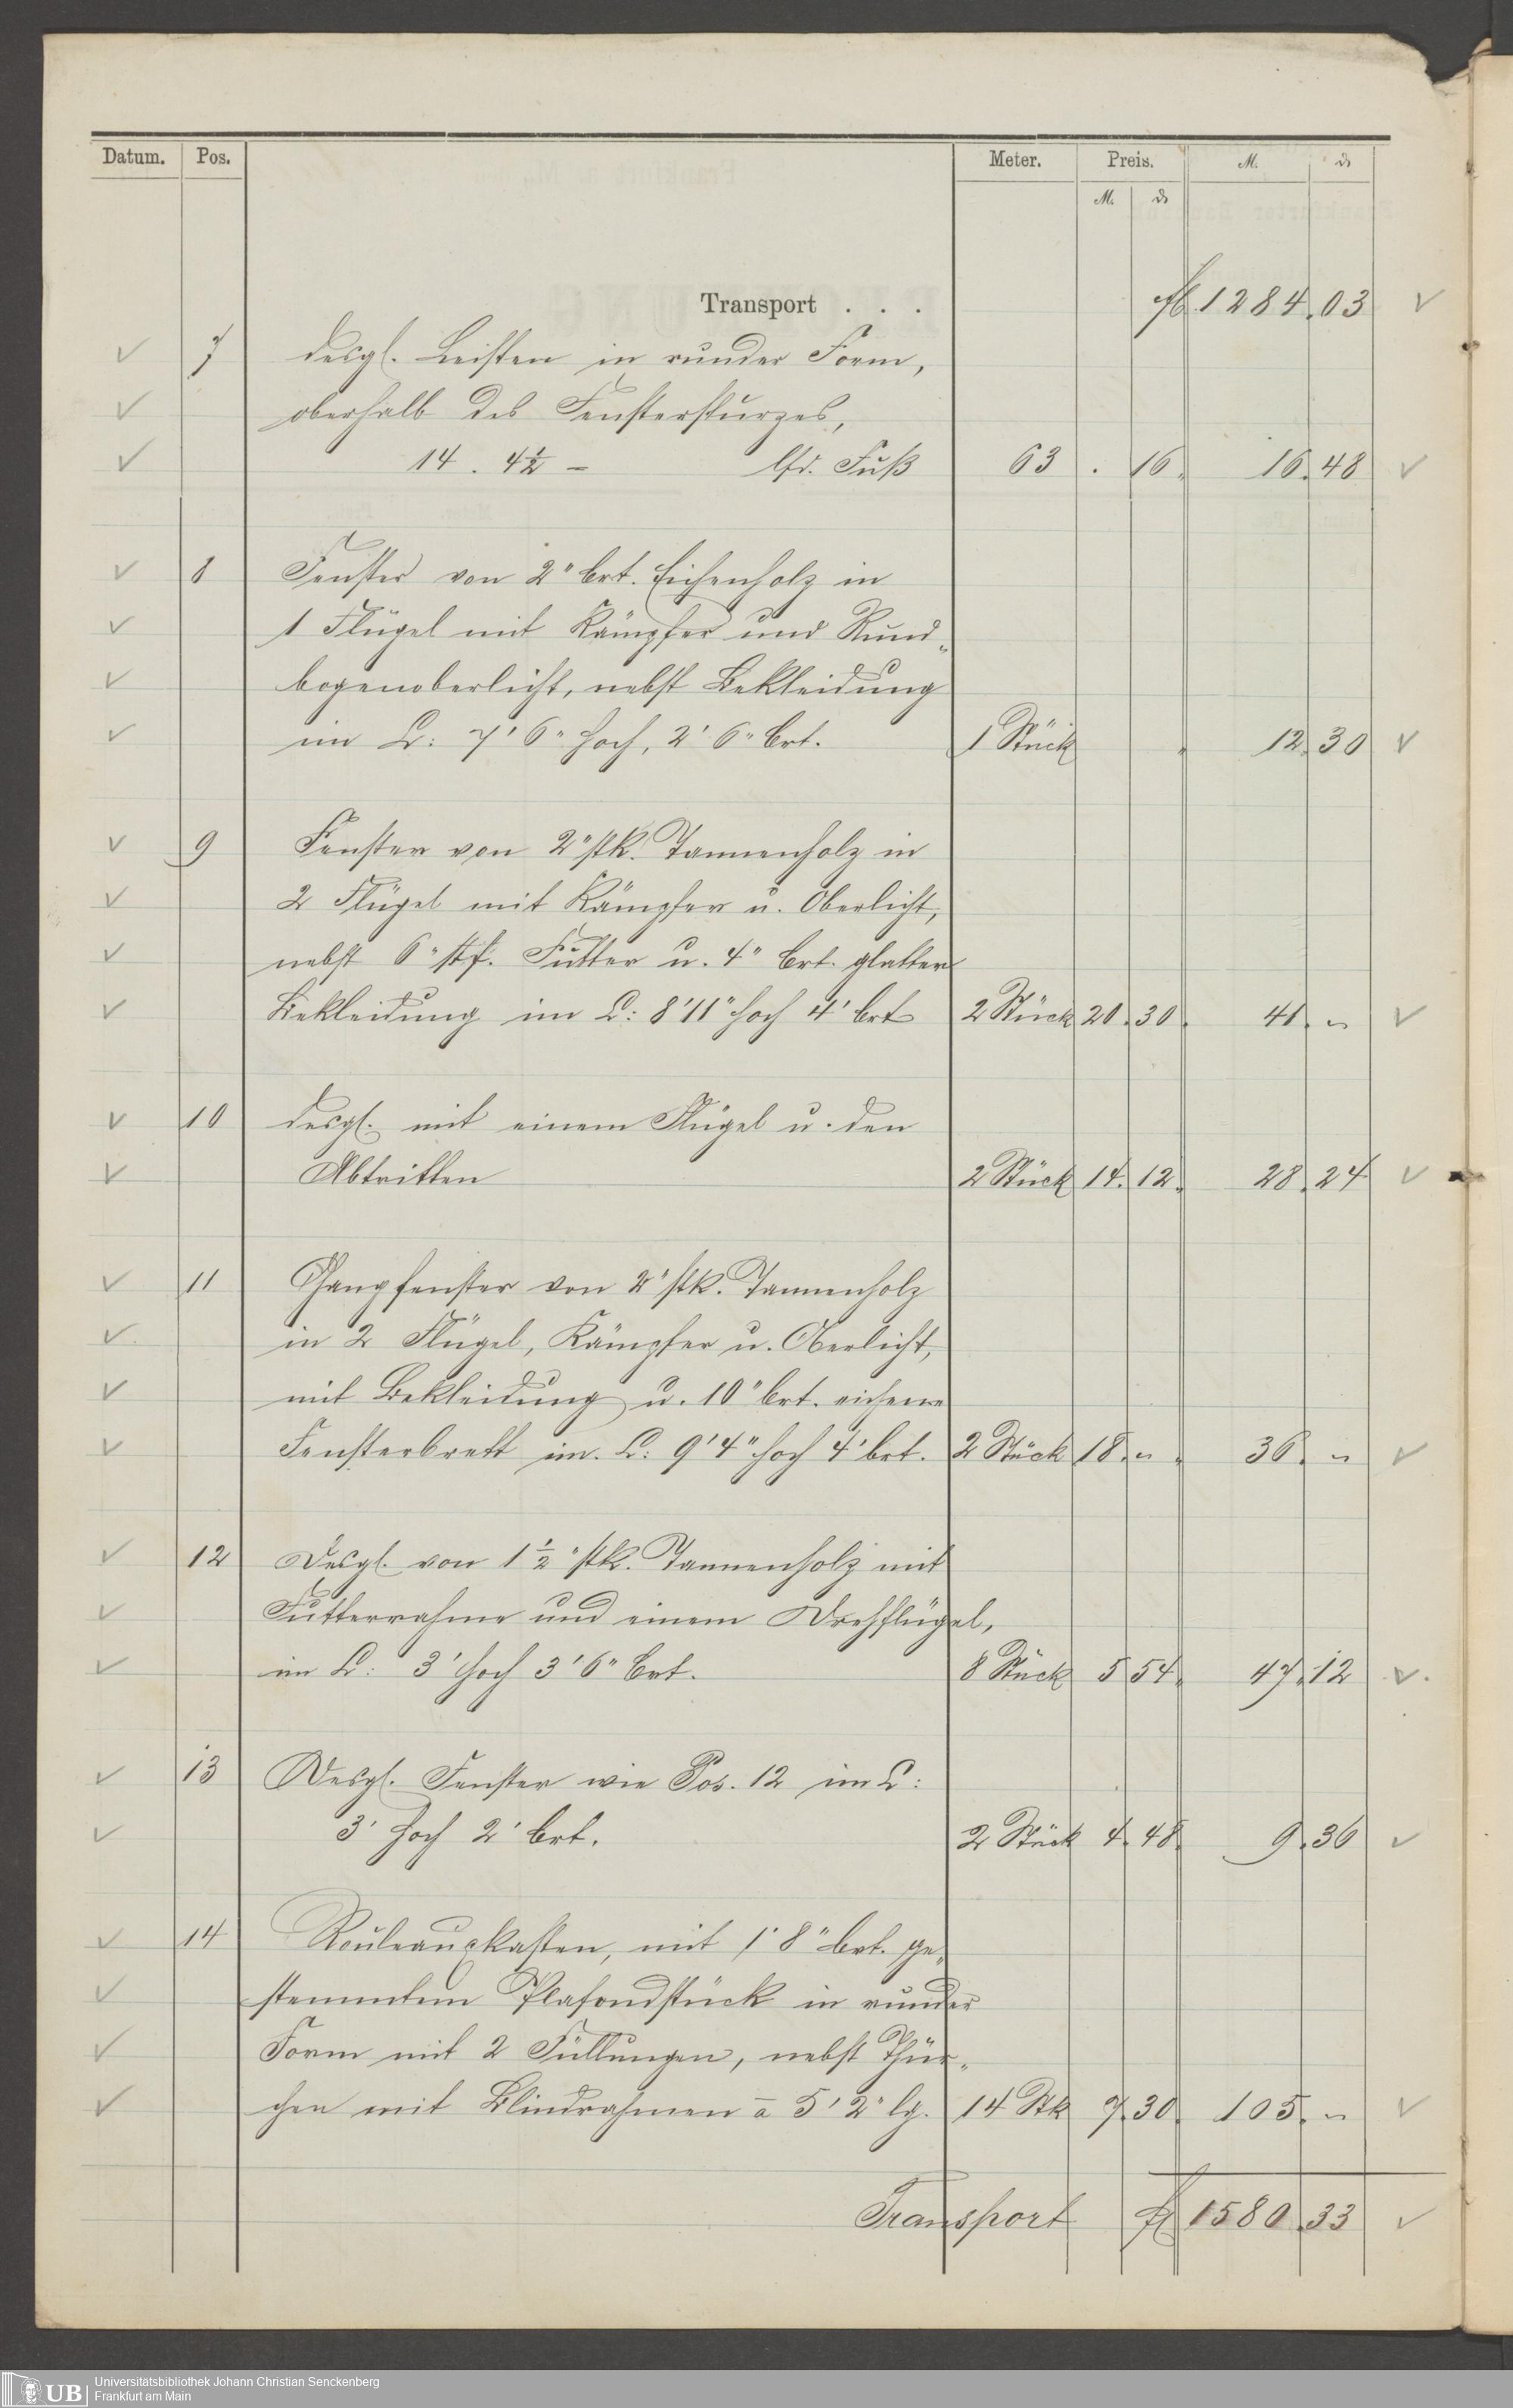 Datum. Pos. Meter. Preis. M. ₰
M. ₰
Transport . . . fl 1284.03
7 desgl. Leisten in runder Form,
oberhalb des Fenstersturzes,
14 . 4½ – lfd. Fuß 63 . 16. 16.48
8 Fenster von 2" brt. Eichenholz in
1 Flügel mit Kämpfer und Rund-
bogenoberlicht, nebst Bekleidung
im L: 7'6" hoch, 2'6" brt. 1 Stück 12.30
9 Fenster von 2" stk. Tannenholz in
2 Flügel mit Kämpfer u. Oberlicht,
nebst 6" Futter u. 4" brt. glatter
Bekleidung im L: 8'11" hoch 4' brt 2 Stück 20.30. 41. "
10 desgl. mit einem Flügel u. den
Abtritten 2 Stück 14.12. 28.24
11 Gangfenster von 2" stk. Tannenholz
in 2 Flügel, Kämpfer u. Oberlicht,
mit Bekleidung u. 10" brt. eichene
Fensterbrett im. L: 9'4" hoch 4' brt. 2 Stück 18. " 36. "
12 Desgl. von 1½" stk. Tannenholz mit
Futterrahme und einem Drehflügel,
im L: 3' hoch 3'6" brt. 8 Stück 5 54. 47.12
13 Desgl. Fenster wie Pos. 12 im L:
3' hoch 2' brt. 2 Stück 4.48. 9.36
14 Rouleauxkasten, mit 1'8" brt. ge-
stemmtem Plafondstück in runder
Form mit 2 Füllungen, nebst Thür-
chen mit Blindrahmen à 5'2" lg. 14 Stk 7.30. 105. "
Transport fl 1580.33
UB Universitätsbibliothek Johann Christian Senckenberg
Frankfurt am Main